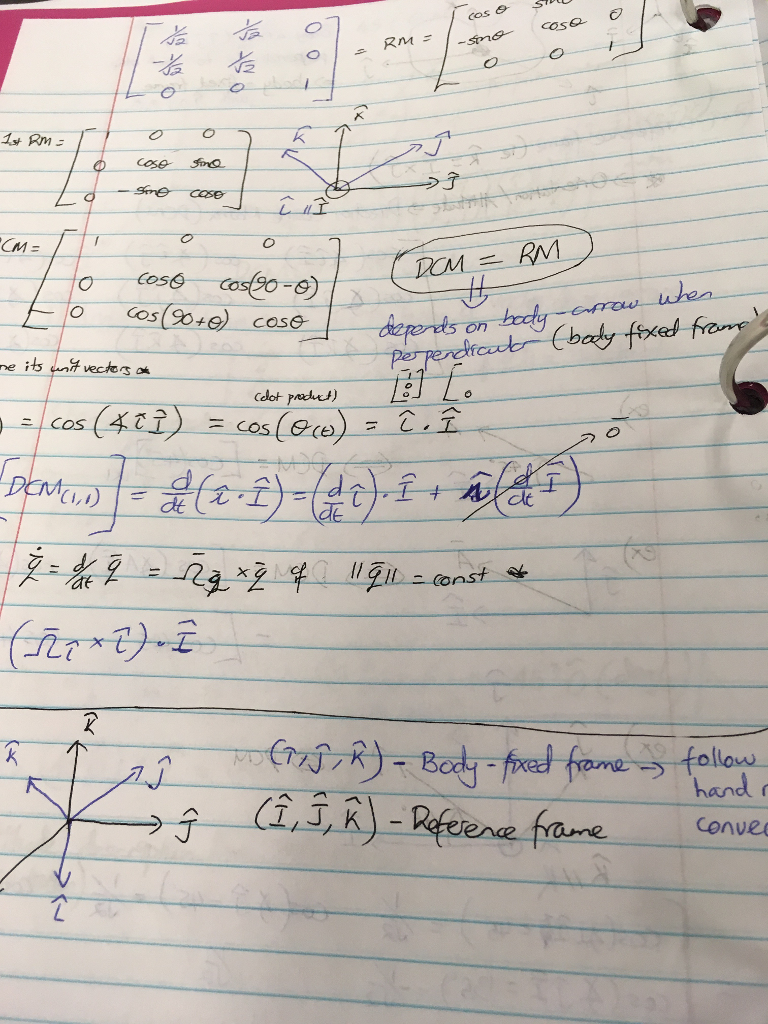 [ 1/√2 1/√2 0 ; -1/√2 1/√2 0 ; 0 0 1 ] = RM = [ cosθ sinθ 0 ; -sinθ cosθ 0 ; 0 0 1 ]
1st RM = [ 1 0 0 ; 0 cosθ sinθ ; 0 -sinθ cosθ ]
K̂
k̂
ĵ
Ĵ
î // Î
CM = [ 1 0 0 ; 0 cosθ cos(90-θ) ; 0 cos(90+θ) cosθ ]
DCM = RM
⇓
depends on body-arrow when
perpendicular (body fixed frame)
ne its unit vectors *
[ 1 0 0 ] [ 0
(dot product)
) = cos (∡ î Î) = cos(θ(t)) = î · Î
0̄
[DCM(1,1)] = d/dt (î · Î) = (d/dt î) · Î + î (d/dt Î)
q̄̇ = d/dt q̄ = Ω̄q̄ × q̄ if ||q̄|| = const *
(Ω̄î × î) · Î
K̂
k̂
ĵ
Ĵ
î
(î, ĵ, k̂) - Body-fixed frame → follow
hand
(Î, Ĵ, K̂) - Reference frame